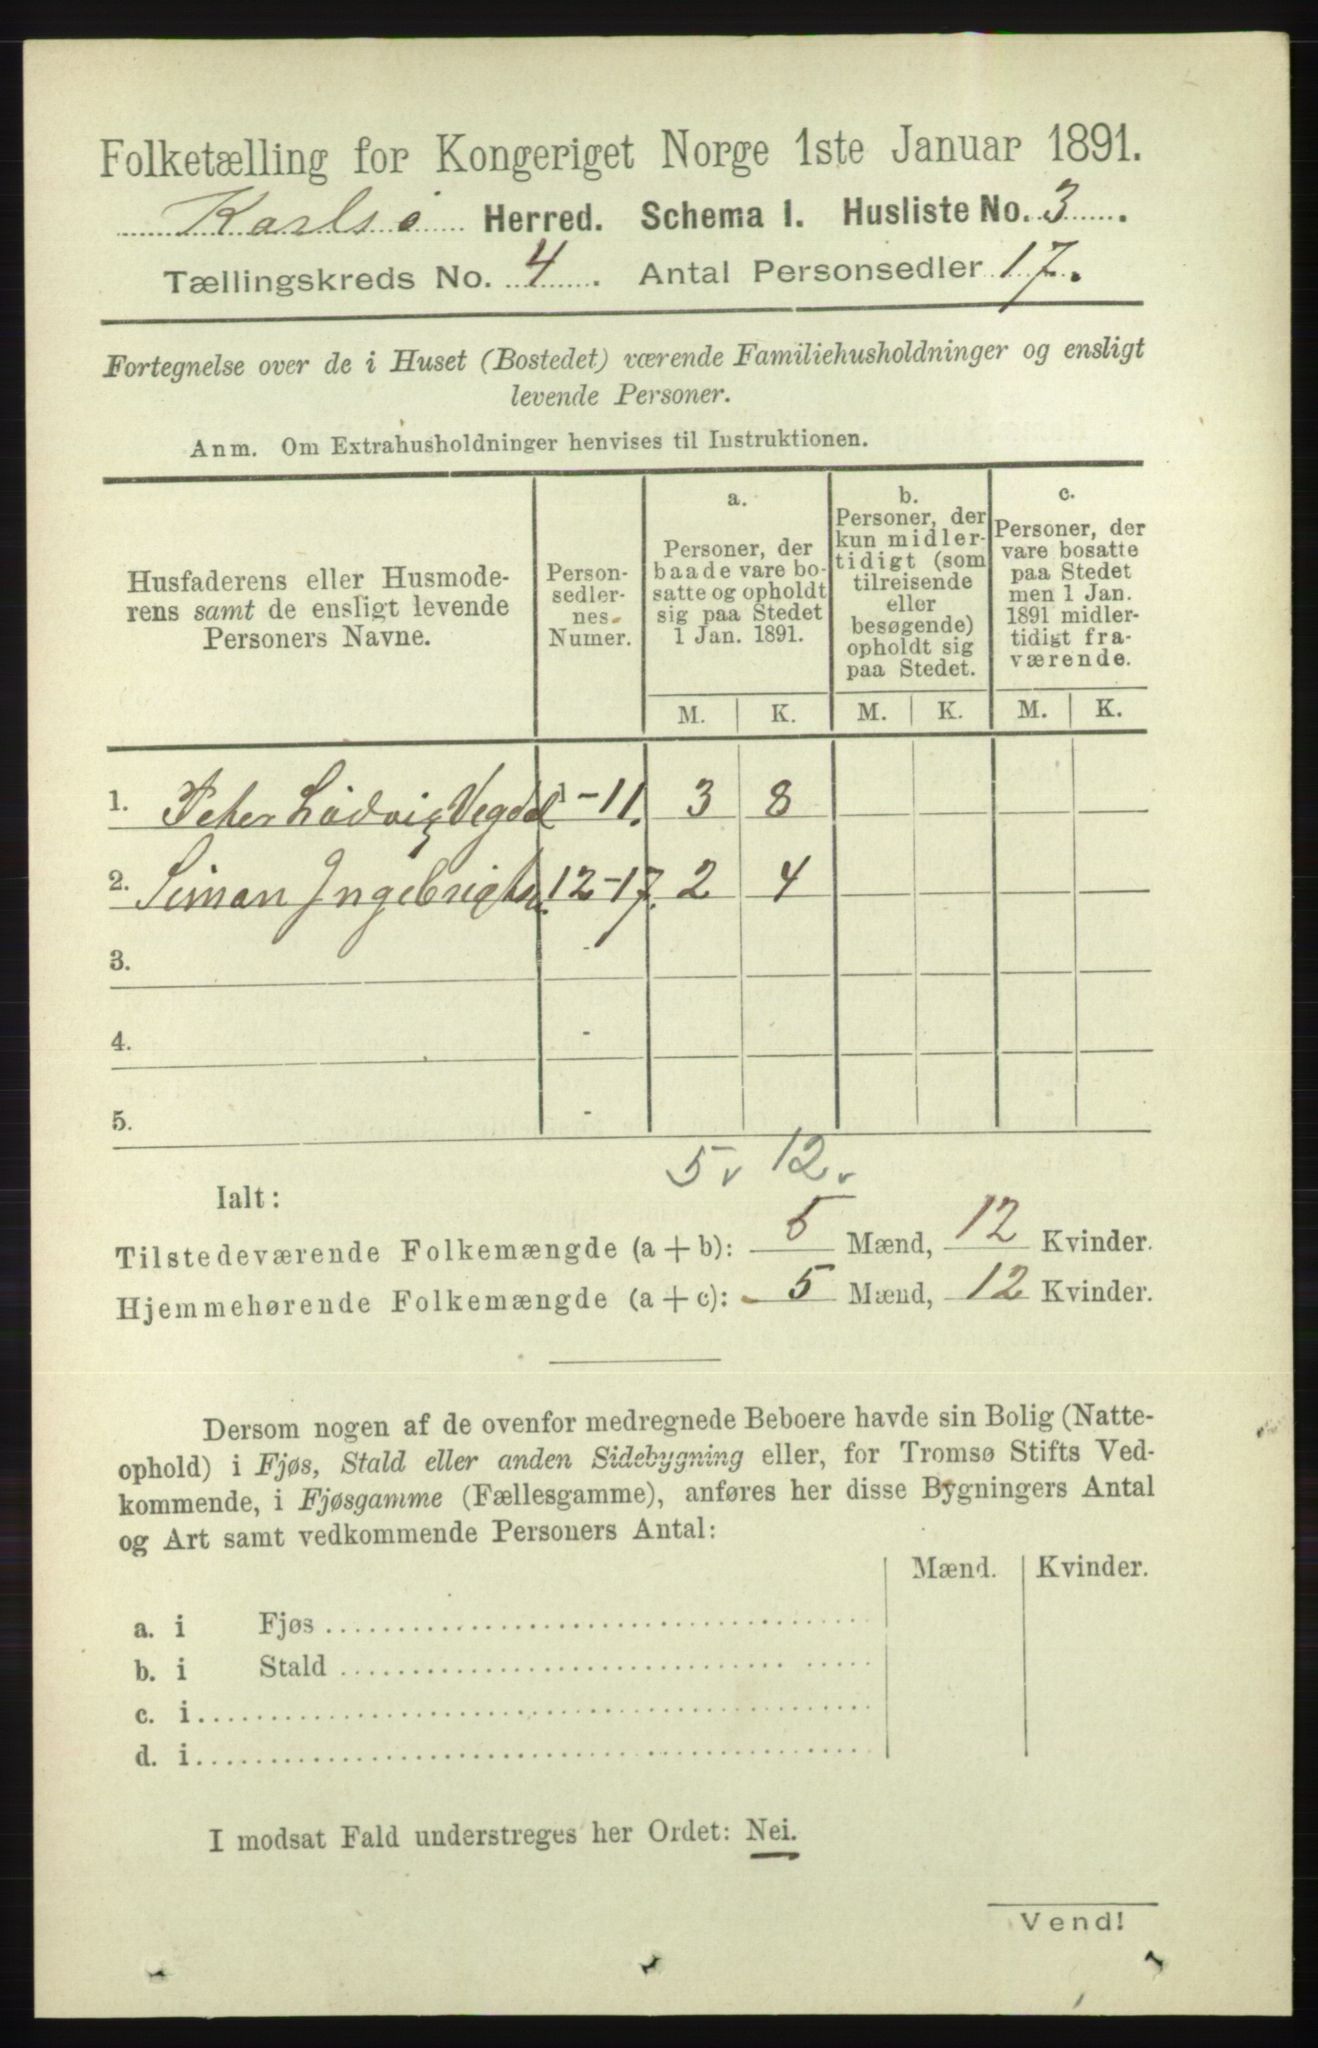 Folketælling for Kongeriget Norge 1ste Januar 1891.
Karlsö Herred. Schema I. Husliste No. 3.
Tællingskreds No. 4. Antal Personsedler 17.
Fortegnelse over de i Huset (Bostedet) værende Familiehusholdninger og ensligt
levende Personer.
Anm. Om Extrahusholdninger henvises til Instruktionen.
Husfaderens eller Husmode-
rens samt de ensligt levende
Personers Navne.
Person-
sedler-
nes
Numer.
a.
Personer, der
baade vare bo-
satte og opholdt
sig paa Stedet
1 Jan. 1891.
b.
Personer, der
kun midler-
tidigt (som
tilreisende
eller
besøgende)
opholdt sig
paa Stedet.
c.
Personer, der
vare bosatte
paa Stedet
men 1 Jan.
1891 midler-
tidigt fra-
værende.
M. K. M. K. M. K.
1. Peter Lüdvig Vegdal 1-11. 3 8
2. Simon Ingebrigtsn. 12-17. 2 4
3. -
4. -
5. -
5 12
Ialt:
Tilstedeværende Folkemængde (a + b): 5 Mænd, 12 Kvinder.
Hjemmehørende Folkemængde (a + c): 5 Mænd, 12 Kvinder.
Dersom nogen af de ovenfor medregnede Beboere havde sin Bolig (Natte-
ophold) i Fjøs, Stald eller anden Sidebygning eller, for Tromsø Stifts Ved-
kommende, i Fjøsgamme (Fællesgamme), anføres her disse Bygningers Antal
og Art samt vedkommende Personers Antal:
Mænd. Kvinder.
a. i Fjøs
b. i Stald
c. i
d. i
I modsat Fald understreges her Ordet: Nei.
Vend!